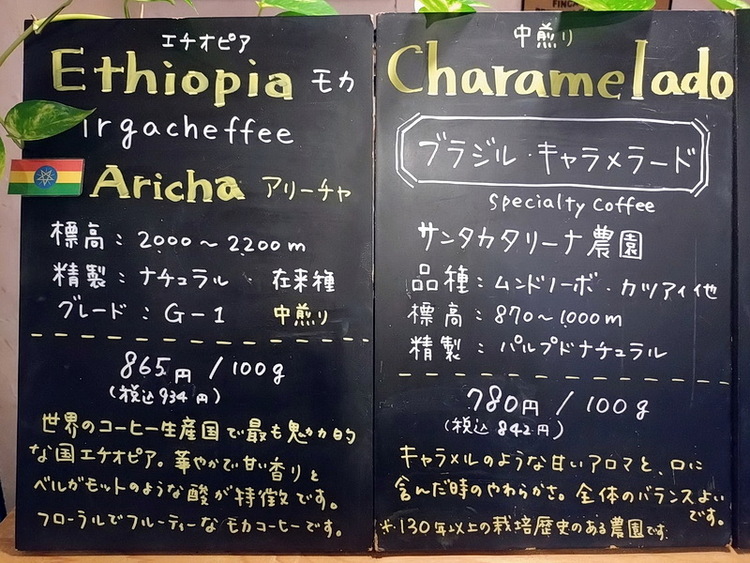 エチオピア
Ethiopia モカ
Irgacheffee
Aricha アリーチャ
標高：2000～2200m
精製：ナチュラル・在来種
グレード：G-1 中煎り
865円/100g
(税込934円)
世界のコーヒー生産国で最も魅力的
な国エチオピア。華やかで甘い香りと
ベルガモットのような酸が特徴です。
フローラルでフルーティーなモカコーヒーです。
中煎り
Charamelado
ブラジル・キャラメラード
Specialty Coffee
サンタカタリーナ農園
品種：ムンドノーボ・カツアイ他
標高：870～1000m
精製：パルプドナチュラル
780円/100g
(税込842円)
キャラメルのような甘いアロマと、口に
含んだ時のやわらかさ。全体のバランスよい
です。
※130年以上の栽培歴史のある農園です